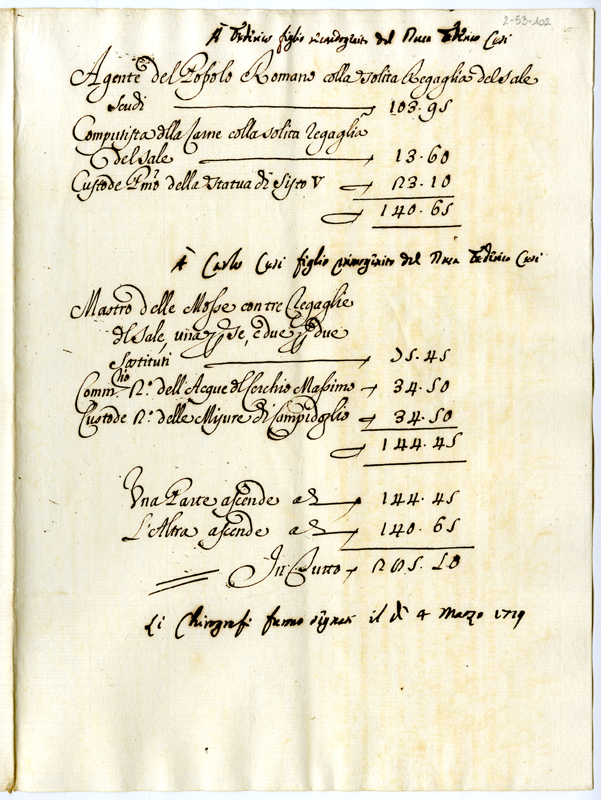 2-53-102
À Federico figlio secondogenito del Duca Federico Cesi
Agente del Popolo Romano colla solita Regaglia del sale
scudi 103.95
Computista della Came colla solita regaglia
del sale 13.60
Custode Pmo della statua di Sisto V 23.10
140.65
À Carlo Cesi figlio primogenito del Duca Federico Cesi
Mastro delle Mosse con tre Regaglie
del sale, una per se, e due per due
Sostituti 75.45
Commrio N.º dell'Acque del Serchio Massimo 34.50
Custode N.º delle Misure di Campidoglio 34.50
144.45
Una Parte ascende a 144.45
L'Altra ascende a 140.65
In Tutto 285.10
Li Chirografi furno signati il dì 4 Marzo 1719